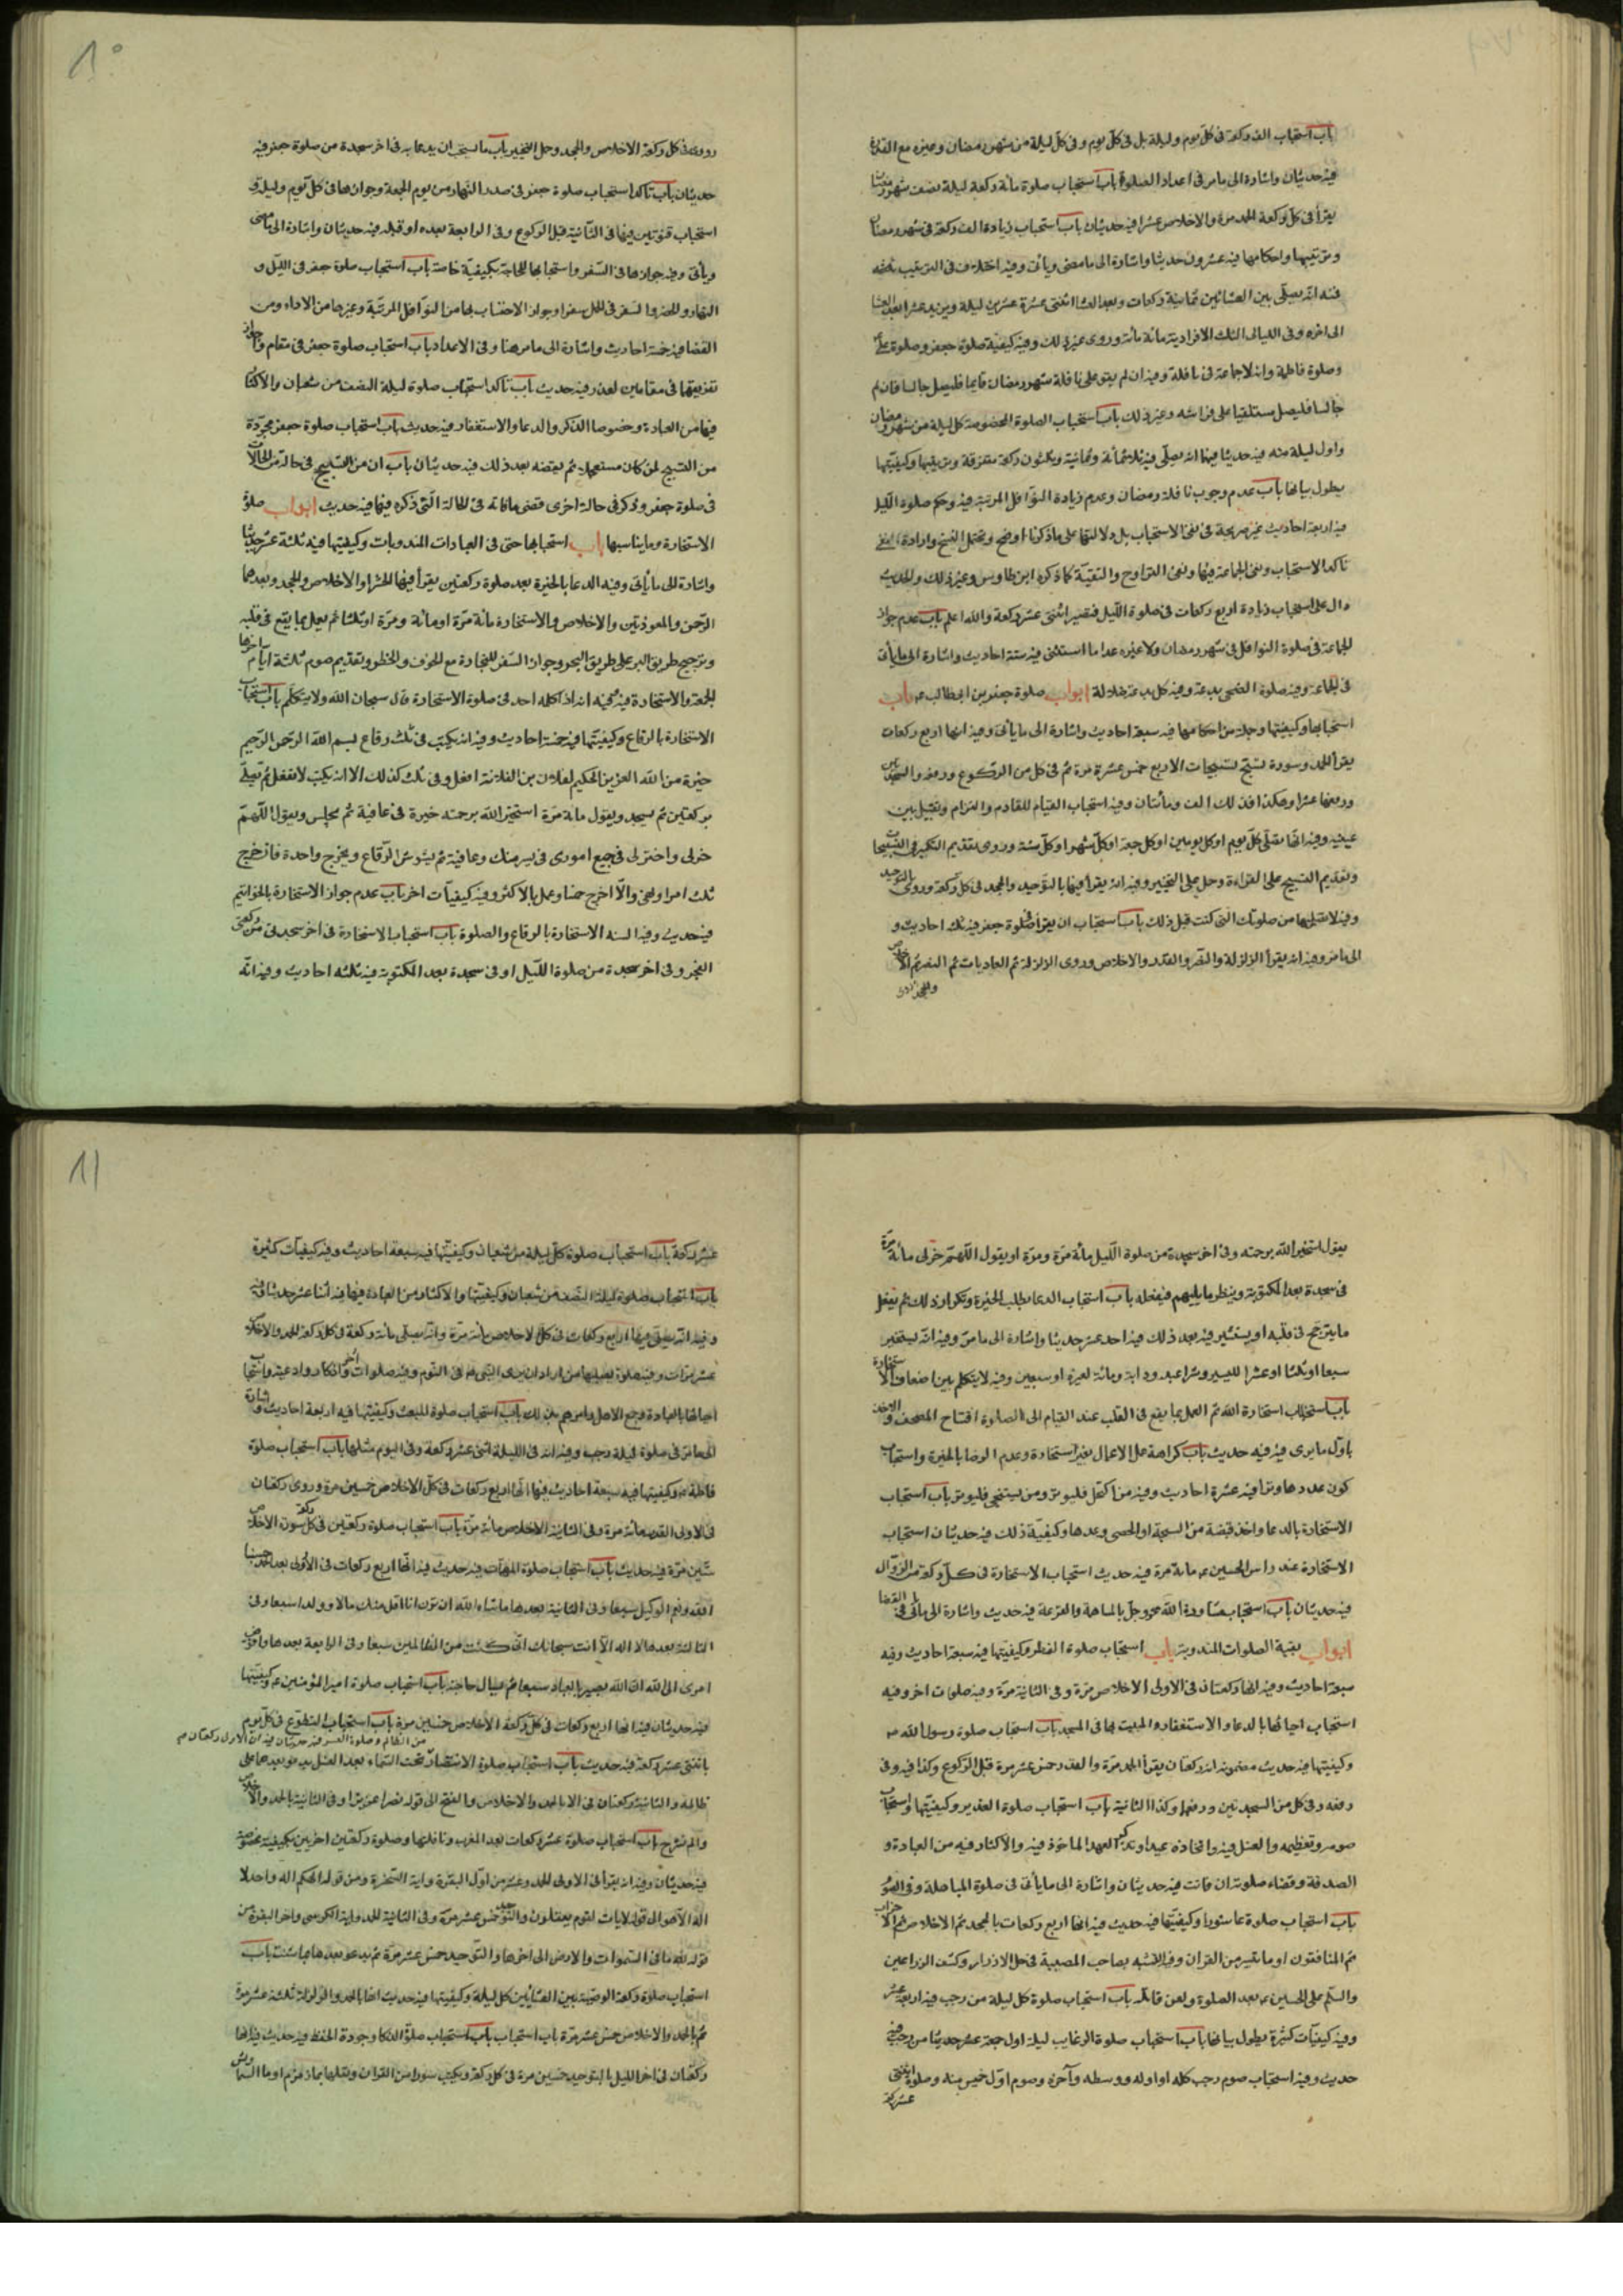 باب استحباب الف ركعة فى كل يوم وليلة بل فى كل يوم وفى كل ليلة من شهر رمضان وغيره مع القدرة
فيه حديثان واشارة الى ما مر فى اعداد الصلوة باب استحباب صلوة مائة ركعة ليلة نصف شهر رمضان
يقرأ فى كل ركعة الحمد مرة والاخلاص عشرا فيه حديثان باب استحباب زيادة الف ركعة فى شهر رمضان
وترتيبها واحكامها فيه عشرون حديثا واشارة الى ما مضى ويأتى وفيه اختلاف فى الترتيب
فيه انه يصلى بين العشائين ثمانية ركعات وبعد العشا اثنتى عشرة عشرين ليلة ويزيد عشرا بعد العشا
الى اخره وفى الليالى الثلث الافرادية مائة مائة وروى غير ذلك وفيه كيفية صلوة جعفر وصلوة على
وصلوة فاطمة وانه لا جماعة فى نافلة وفيه ان لم يقو على نافلة شهر رمضان قايما فليصل جالسا فان لم
جالسا فليصل مستلقيا على فراشه وغير ذلك باب استحباب الصلوة المخصوصة كل ليلة من شهر رمضان
واول ليلة منه فيه حديثا فيها انه يصلى فيه ثلاثمائة وثمانية وثلثون ركعة متفرقة وترتيبها وكيفيتها
يطول بيانها باب عدم وجوب نافلة رمضان وعدم زيادة النوافل المرتبة فيه وحكم صلوة الليل
فيه اربعة احاديث غير صريحة فى نفى الاستحباب بل دلالتها على ما ذكرنا اوضح ويحتمل النسخ وارادة نفى
تاكد الاستحباب ونفى الجماعة فيها ونفى التراوح والتقية كما ذكره ابن طاوس وغير ذلك والحديث
دال على استحباب زيادة اربع ركعات فى صلوة الليل فتصير اثنتى عشر ركعة والله اعلم باب عدم جواز
الجماعة فى صلوة النوافل فى شهر رمضان ولا غيره عدا ما استثنى فيه ستة احاديث واشارة الى ما يأتى
فى الجماعة وفيه صلوة الضحى بدعة وفيه كل بدعة ضلالة ابواب صلوة جعفر بن ابيطالب ع باب
استحبابها وكيفيتها وجملة من احكامها فيه سبعة احاديث واشارة الى ما يأتى وفيه انها اربع ركعات
يقرأ الحمد وسورة يسبح تسبيحات الاربع خمس عشرة مرة ثم فى كل من الركوع ورفعه والسجدتين
ورفعها عشرا وهكذا فذلك الف ومأتتان وفيه استحباب القيام للقادم والتزام وتقبيل بين
عينيه وفيه انها تصلى كل يوم او كل يومين او كل جمعة او كل شهر او كل سنة وروى تقديم التكبير فى التسبيحات
وتقديم التسبيح على القراءة وحمل على التخيير وفيه انه يقرأ فيها بالتوحيد والجحد فى كل ركعة وروى بالتوحيد
وفيه لا تصليها من صلوتك التى كنت قبل ذلك باب استحباب ان يقرأ فى صلوة جعفر فيه ثلث احاديث و
الى ما مر وفيه انه يقرأ الزلزلة والنصر والقدر والاخلاص وروى الزلزلة ثم العاديات ثم النصر ثم الاخلاص
وروى فى كل ركعة الاخلاص والجحد وحمل التخيير باب ما يستحب ان يدعا به فى اخر سجدة من صلوة جعفر فيه
حديثان باب تاكد استحباب صلوة جعفر فى صدر النهار من يوم الجمعة وجوازها فى كل يوم وليلة و
استحباب قنوتين فيها فى الثانية قبل الركوع وفى الرابعة بعده او قبله فيه حديثان واشارة الى ما مضى
ويأتى وفيه جوازها فى السفر واستحبابها للحاجة بكيفية خاصة باب استحباب صلوة جعفر فى الليل و
النهار والحضر والسفر فى المحمل سفرا وجواز الاحتساب بها من النوافل المرتبة وغيرها من الاداء ومن
القضا فيه خمسة احاديث واشارة الى ما مر هنا وفى الاعداد باب استحباب صلوة جعفر فى مقام وجواز
تفريقها فى مقامين لعذر فيه حديث باب تاكد استحباب صلوة ليلة النصف من شعبان والاكثار
فيها من العبادة وخصوصا الذكر والدعا والاستغفار فيه حديث باب استحباب صلوة جعفر مجردة
من التسبيح لمن كان مستعجلا ثم يقضه بعد ذلك فيه حديثان باب ان من التسبيح فى حالة من الحالات
فى صلوة جعفر وذكر فى حالة اخرى قضى ما فاته فى الحالة التى ذكره فيها فيه حديث ابواب صلوة
الاستخارة وما يناسبها باب استحبابها حتى فى العبادات المندوبات وكيفيتها فيه ثلثة عشر حديثا
واشارة الى ما يأتى وفيه الدعا بالخيرة بعد صلوة ركعتين يقرأ فيها الحشر او الاخلاص والجحد وبعدهما
الرحمن والمعوذتين والاخلاص والاستخارة مائة مرة او مائة ومرة او ثلثا ثم يعمل بما يقع فى قلبه
وترجيح طريق البر على طريق البحر وجواز السفر للتجارة مع الخوف والخطر وتقديم صوم ثلثة ايام اخرها
الجمعة والاستخارة فيه انه اذا كلمه احد فى صلوة الاستخارة قال سبحان الله ولا يتكلم باب استحباب
الاستخارة بالرقاع وكيفيتها فيه خمسة احاديث وفيه انه يكتب فى ثلث رقاع بسم الله الرحمن الرحيم
خيرة من الله العزيز الحكيم لفلان بن الفلانة افعل وفى ثلث كذلك الا انه يكتب لا تفعل ثم يصلى
بركعتين ثم يسجد ويقول مائة مرة استخير الله برحمته خيرة فى عافية ثم يجلس ويقول اللهم
خر لى واختر لى فى جميع امورى فى يسر منك وعافية ثم يشوش الرقاع ويخرج واحدة فان خرج
ثلث امرا ونهى والا اخرج خمسا وعمل بالاكثر وفيه كيفيات اخر باب عدم جواز الاستخارة بالخواتيم
فيه حديث وفيه السنه الاستخارة بالرقاع والصلوة باب استحباب الاستخارة فى اخر سجدة من ركعتى
الفجر وفى اخر سجدة من صلوة الليل او فى سجدة بعد المكتوبة فيه ثلثه احاديث وفيه انه
يقول استخير الله برحمته وفى اخر سجدة من صلوة الليل مائة مرة ومرة او يقول اللهم خر لى مائة مرة
فى سجدة بعد المكتوبة وينظر ما يلهم فيفعله باب استحباب الدعا بطلب الخيرة وتكرار ذلك ثم يفعل
ما يترجح فى قلبه او يستشير فيه بعد ذلك فيه احد عشر حديثا واشارة الى ما مر وفيه انه يستخير
سبعا او ثلثا او عشرا لليسير وشرا عبد ودابة ومائة لغيره او سبعين وفيه لا يتكلم بين اضعاف الاستخارة
باب استحباب استخارة الله ثم العمل بما يقع فى القلب عند القيام الى الصلوة افتتاح المصحف والاخذ
باول ما يرى فيه فيه حديث باب كراهة عمل الاعمال بغير استخارة وعدم الرضا بالخيرة واستحباب
كون عددها وترا فيه عشرة احاديث وفيه من اكتحل فليوتر ومن يستنجى فليوتر باب استحباب
الاستخارة بالدعا واخذ قبضة من السبحة او الحصى وعدها وكيفية ذلك فيه حديثان استحباب
الاستخارة عند راس الحسين ع مائة مرة فيه حديث استحباب الاستخارة فى كل ركعة من الزوال
فيه حديثان باب استحباب مشاورة الله عز وجل بالمساهمة والقرعة فيه حديث واشارة الى ما يأتى فى القضا
ابواب بقية الصلوات المندوبة باب استحباب صلوة الفطر وكيفيتها فيه سبعة احاديث وفيه
سبعة احاديث وفيه انها ركعتان فى الاولى الاخلاص مرة وفى الثانية مرة وفيه صلوات اخر وفيه
استحباب احيائها بالدعا والاستغفار والمبيت بها فى المسجد باب استحباب صلوة رسول الله ص
وكيفيتها فيه حديث مضمونه انه ركعتان يقرأ الحمد مرة والقدر خمس عشر مرة قبل الركوع وكذا فيه وفى
رفعه وفى كل من السجدتين ورفعها وكذا الثانية باب استحباب صلوة الغدير وكيفيتها واستحباب
صومه وتعظيمه والغسل فيه واتخاذه عيدا وتذكر العهد الماخوذ فيه والاكثار فيه من العبادة و
الصدقة وقضاء صلوته ان فاتت فيه حديثان واشارة الى ما يأتى فى صلوة المباهلة وفى الصوم
باب استحباب صلوة عاشورا وكيفيتها فيه حديث فيه انها اربع ركعات بالجحد ثم الاخلاص ثم الاحزاب
ثم المنافقون او ما تيسر من القران وفيه التشبه بصاحب المصيبة فى حل الازرار وكشف الذراعين
والسلم على الحسين ع بعد الصلوة ولعن قاتله باب استحباب صلوة كل ليلة من رجب فيه اربعة عشر
وفيه كيفيات كثيرة يطول بيانها باب استحباب صلوة الرغايب ليلة اول جمعة عشر حديثا من رجب فيه
حديث وفيه استحباب صوم رجب كله او اوله ووسطه وآخره وصوم اول خميس منه وصلوة اثنتى
عشر ركعة
عشر ركعة باب استحباب صلوة كل ليلة من شعبان وكيفيتها فيه سبعة احاديث وفيه كيفيات كثيرة
باب استحباب صلوة ليلة النصف من شعبان وكيفيتها والاكثار من العبادة فيها فيه اثنا عشر حديثا
وفيه انه يصلى فيها اربع ركعات فى كل الاخلاص مائة مرة وانه يصلى مائة ركعة فى كل ركعة الحمد والاخلاص
عشر مرات وفيه صلوة يصليها من اراد ان يرى النبى ص فى النوم وفيه صلوات اخر واذكار وادعية واستحباب
احيائها بالعبادة وجمع الاهل وامرهم بذلك باب استحباب صلوة المبعث وكيفيتها فيه اربعة احاديث واشارة
الى ما مر فى صلوة ليلة رجب وفيه انه فى الليلة اثنى عشر ركعة وفى اليوم مثلها باب استحباب صلوة
فاطمة ع وكيفيتها فيه سبعة احاديث فيها انها اربع ركعات فى كل الاخلاص خمسين مرة وروى ركعتان
فى الاولى القدر مائة مرة وفى الثانية الاخلاص مائة مرة باب استحباب صلوة ركعتين فى كل ركعة سورة الاخلاص
ستين مرة فيه حديث باب استحباب صلوة المهمات فيه حديث فيه انها اربع ركعات فى الاولى بعد الحمد حسبنا
الله ونعم الوكيل سبعا وفى الثانية بعدها ما شاء الله ان ترن انا اقل منك مالا وولدا سبعا وفى
الثالثة بعدها لا اله الا انت سبحانك انى كنت من الظالمين سبعا وفى الرابعة بعدها وافوض
امرى الى الله ان الله بصير بالعباد سبعا ثم يسأل حاجته باب استحباب صلوة امير المؤمنين ع وكيفيتها
فيه حديثان فيه انها اربع ركعات فى كل ركعة الاخلاص خمسين مرة باب استحباب التطوع فى كل يوم
من الظالم وصلوة العسر فيه حديثان فيه ان الاول ركعتان
باثنتى عشر ركعة فيه حديث باب استحباب صلوة الانتصار تحت السماء بعد الغسل يدعو بعدها على
ظالمه والثانية ركعتان فى الاولى بالحمد والاخلاص والفتح الى قوله نصرا عزيزا وفى الثانية بالحمد والاخلاص
والم نشرح باب استحباب صلوة عشر ركعات بعد المغرب ونافلتها وصلوة ركعتين اخريين بكيفية مخصوصة
فيه حديثان وفيه انه يقرأ فى الاولى الحمد وعشر من اول البقرة واية السخرة ومن قوله الهكم اله واحد لا
اله الا هو الى قوله لايات لقوم يعقلون والتوحيد خمس عشر مرة وفى الثانية الحمد واية الكرسى واخر البقرة من
قوله لله ما فى السموات والارض الى اخرها والتوحيد خمس عشر مرة ثم يدعو بعدها بما شئت باب
استحباب صلوة ركعة الوصية بين العشائين كل ليلة وكيفيتها فيه حديث انها بالحمد والزلزلة ثلثة عشر مرة
ثم بالحمد والاخلاص خمس عشر مرة باب استحباب باب استحباب صلوة الذكا وجودة الحفظ فيه حديث فيه انها
ركعتان فى اخر الليل بالتوحيد خمسين مرة فى كل ركعة ويكتب سورا من القران ويغسلها بماء زمزم او ماء السماء